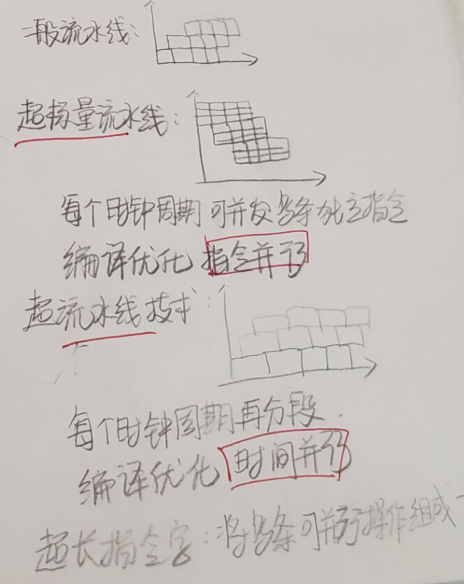 一般流水线:
超标量流水线:
每个时钟周期可并发多条独立指令
编译优化 指令并行
超流水线技术:
每个时钟周期再分段.
编译优化 时间并行
超长指令字:将多条可并行操作组成一